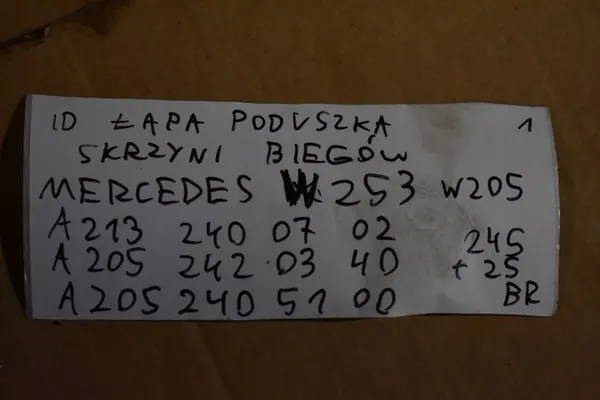 ID ŁAPA PODUSZKA 1
SKRZYNI BIEGÓW
MERCEDES W253 W205
A 213 240 07 02
A 205 242 03 40
A 205 240 51 00
245
+ 25
BR